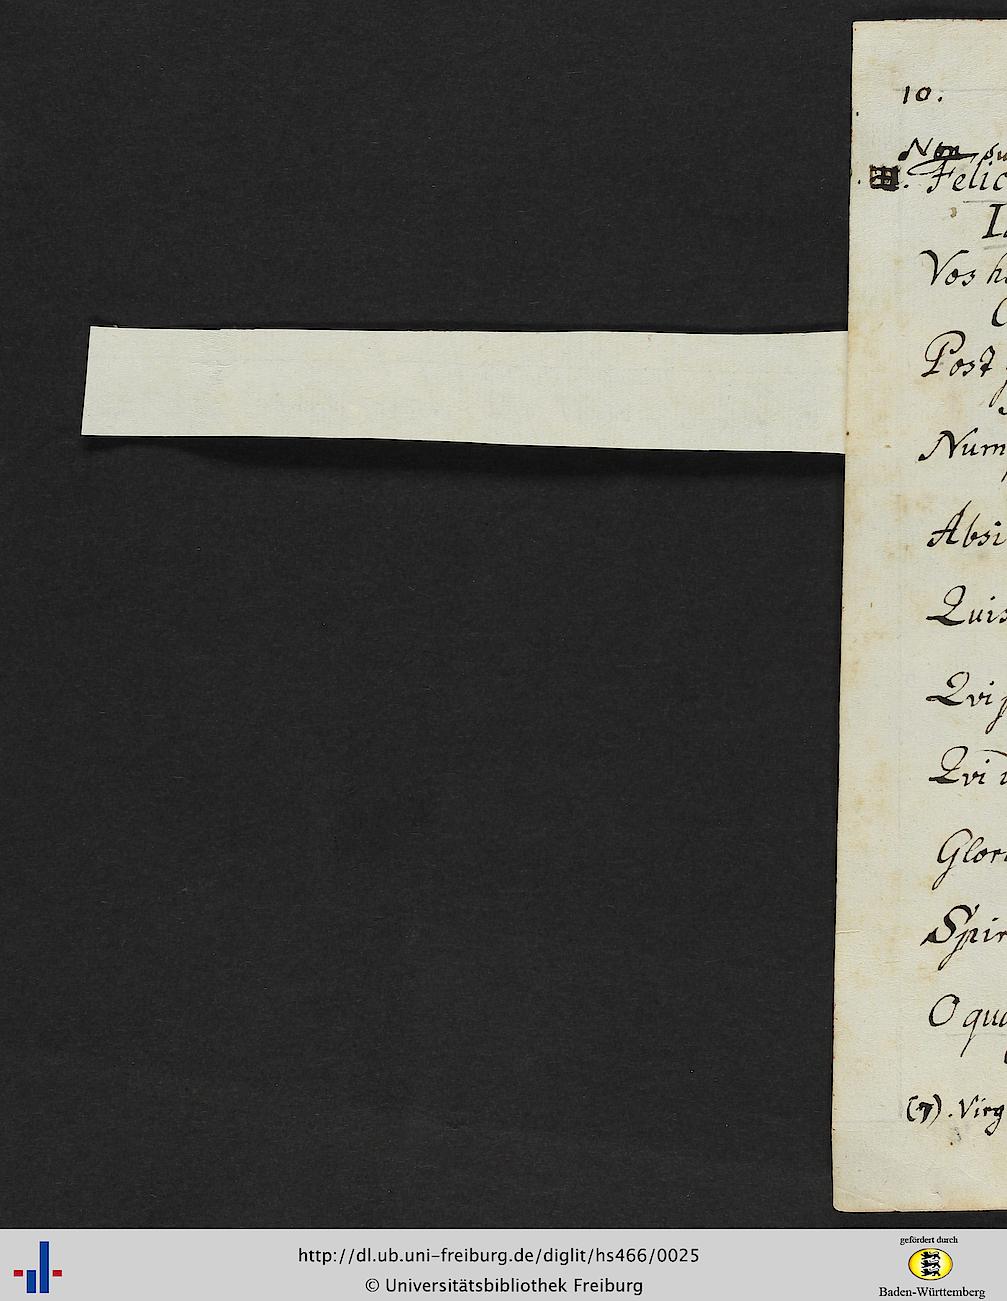 10.
Non su
Felic
I
Vos h
C
Post
Num
Absi
Quis
Qvi
Qvi
Glor
Spir
O qua
(7). Virg
http://dl.ub.uni-freiburg.de/diglit/hs466/0025
© Universitätsbibliothek Freiburg
gefördert durch
Baden-Württemberg